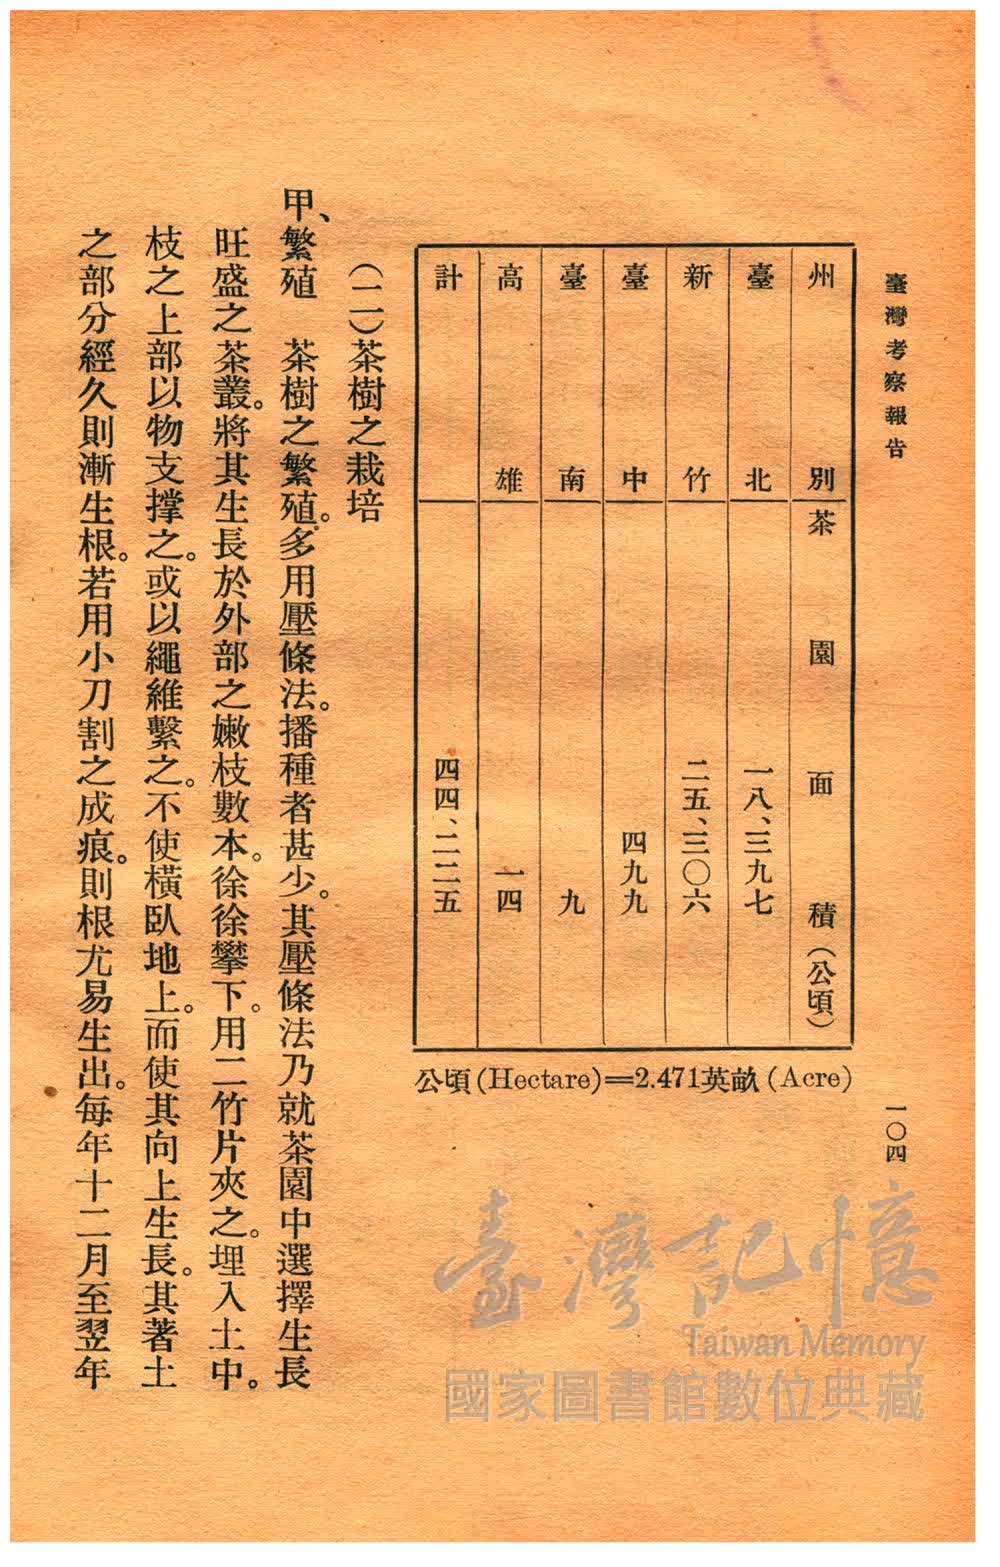 臺灣考察報告
一〇四
州別 茶園面積（公頃）
臺北 一八、三九七
新竹 二五、三〇六
臺中 四九九
臺南 九
高雄 一四
計 四四、二二五
公頃(Hectare)=2.471英畝(Acre)
（二）茶樹之栽培
甲、繁殖　茶樹之繁殖。多用壓條法。播種者甚少。其壓條法乃就茶園中選擇生長
旺盛之茶叢。將其生長於外部之嫩枝數本。徐徐攀下。用二竹片夾之。埋入土中。
枝之上部以物支撐之。或以繩維繫之。不使橫臥地上。而使其向上生長。其著土
之部分經久則漸生根。若用小刀割之成痕。則根尤易生出。每年十二月至翌年
臺灣記憶
Taiwan Memory
國家圖書館數位典藏